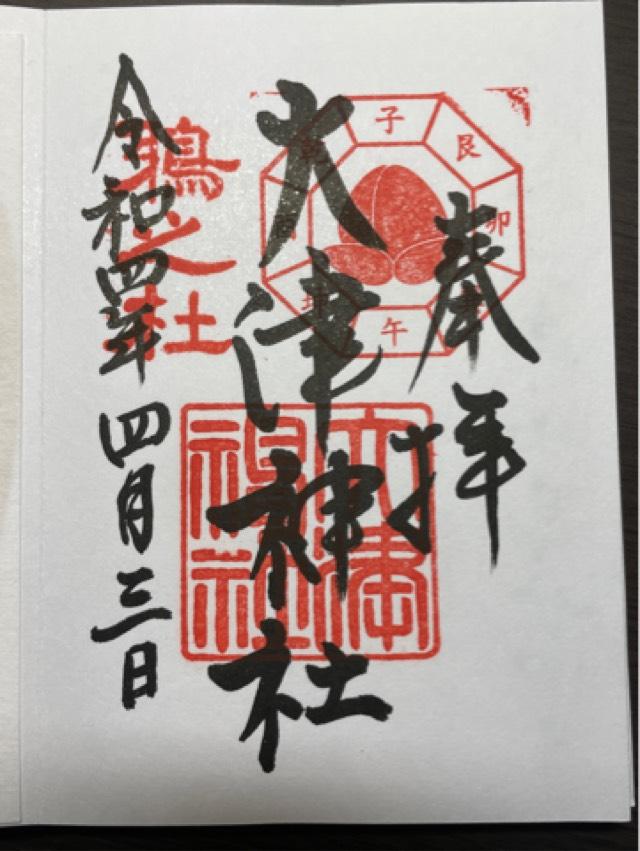 奉拝
大津神社
令和四年四月三日
子
艮
卯
午
之社
大津
神社